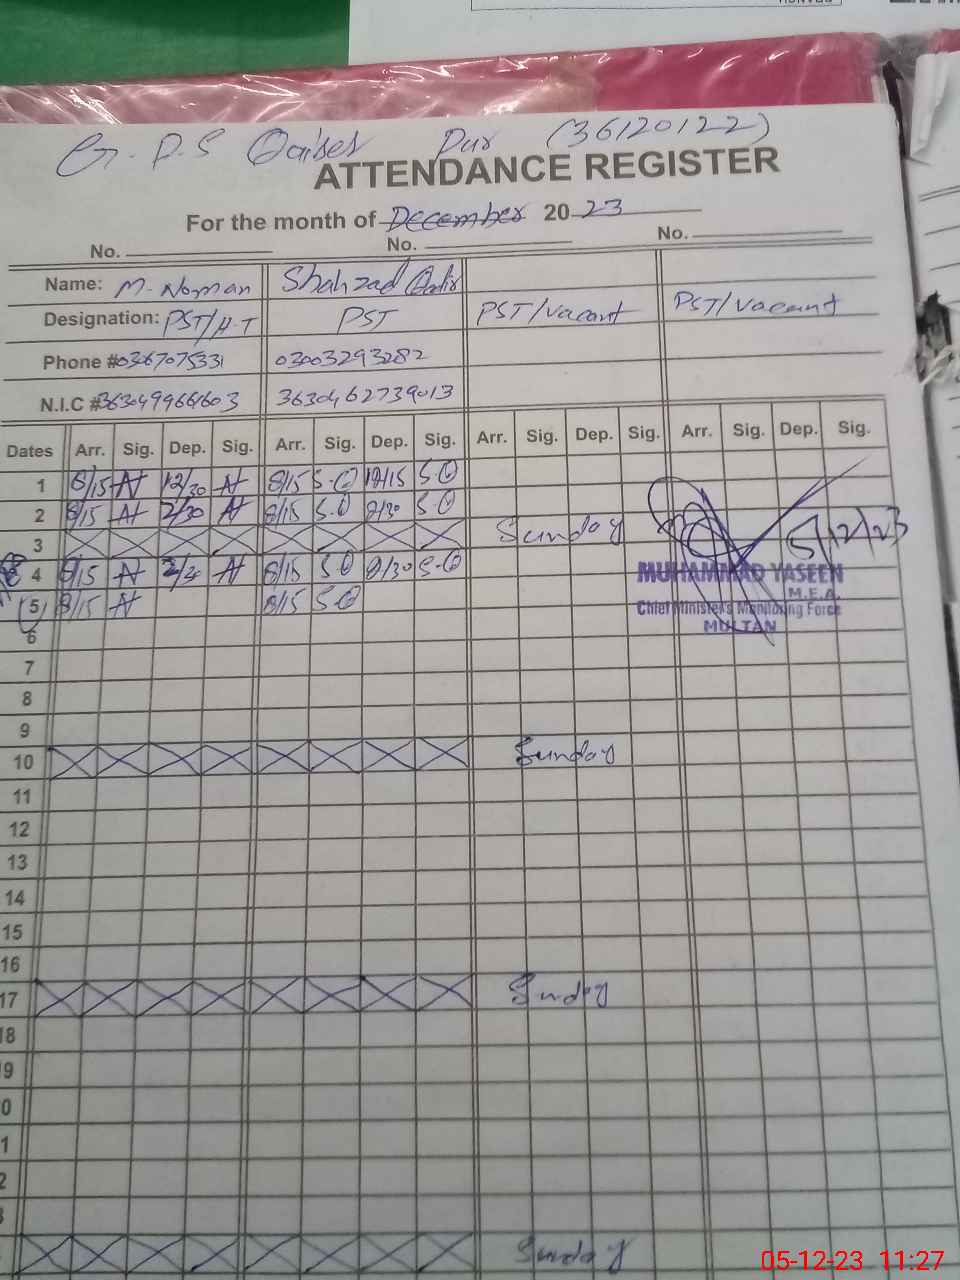 G. P.S Qaiser Pur (36120122)
ATTENDANCE REGISTER
For the month of December 2023
No. No. No.
Name: M. Noman Shahzad Qadir
Designation: PST/H.T PST PST/Vacant PST/Vacant
Phone # 03003293282
N.I.C # 3630462739013
Dates Arr. Sig. Dep. Sig. Arr. Sig. Dep. Sig. Arr. Sig. Dep. Sig. Arr. Sig. Dep. Sig.
1 8/15 12/30 8/15 S.Q 12/15 S.Q
2 8/15 2/30 8/15 S.Q 2/30 S.Q
3 Sunday
5/12/23
4 8/15 8/15 S.Q 2/30 S.Q
MUHAMMAD YASEEN
M.E.A.
Chief Minister's Monitoring Force
MULTAN
5 8/15 8/15 S.Q
6
7
8
9
10 Sunday
11
12
13
14
15
16
17 Sunday
18
9
0
1
2
3
Sunday
05-12-23 11:27